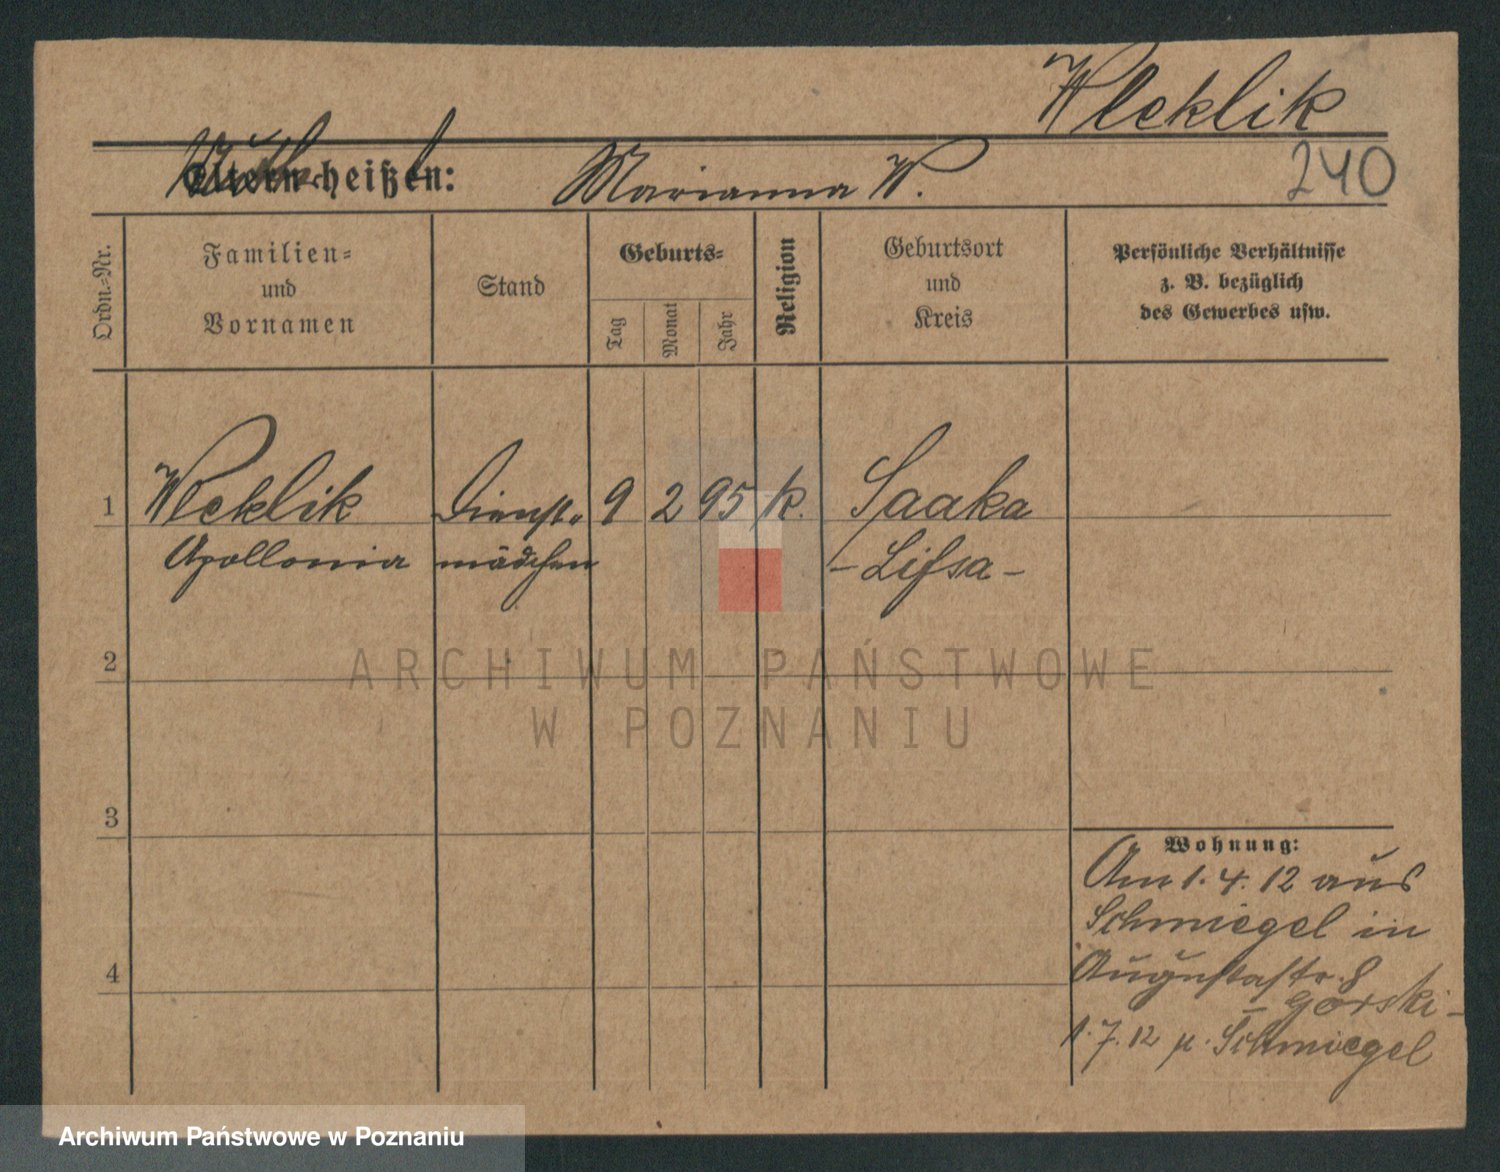 Weklik
240
Eltern heißen: Marianna W.
Ordn.-Nr.
Familien-
und
Vornamen
Stand
Geburts-
Tag
Monat
Jahr
Religion
Geburtsort
und
Kreis
Persönliche Verhältnisse
z. B. bezüglich
des Gewerbes usw.
1 Weklik Dienst- 9 2 95 k. Saaka
Apollonia mädchen - Lissa -
2
3
4
ARCHIWUM PAŃSTWOWE
W POZNANIU
Wohnung:
Am 1.4.12 aus
Schmiegel in
Augustastr. 8
- Górski -
1.7.12 n. Schmiegel
Archiwum Państwowe w Poznaniu